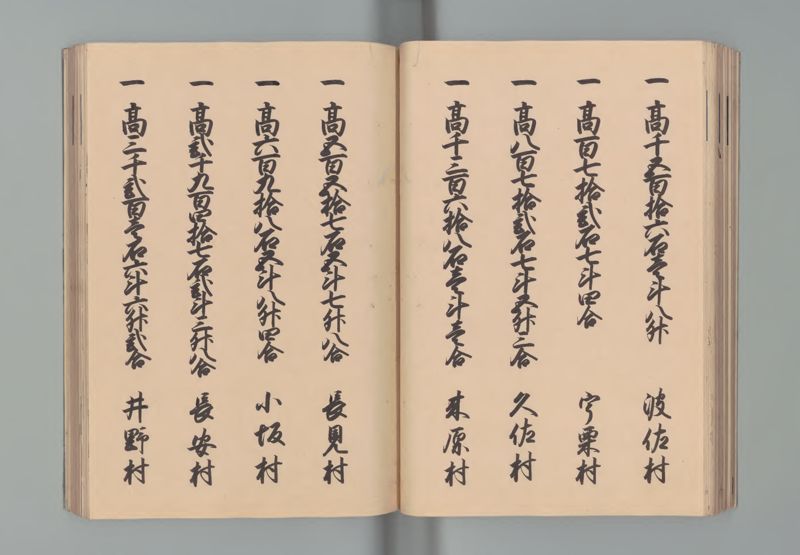 一 高千五百拾六石壱斗八升 波佐村
一 高百七拾弐石七斗四合 宇栗村
一 高八百七拾弐石七斗五升二合 久佐村
一 高千三百六拾八石壱斗壱合 来原村
一 高五百五拾七石五斗七升八合 長見村
一 高六百九拾八石五斗八升四合 小坂村
一 高弐千九百四拾七石弐斗三升八合 長安村
一 高三千弐百壱石六斗六升弐合 井野村